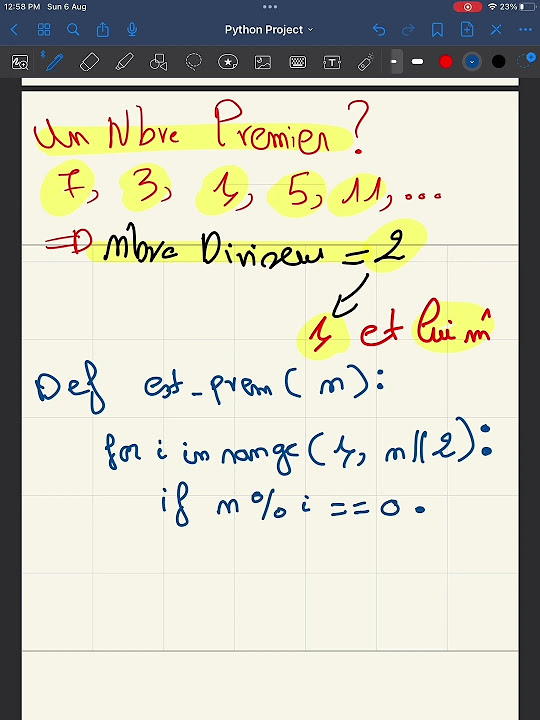 12:58 PM Sun 6 Aug
23%
Python Project
Un Nbre Premier ?
7, 3, 1, 5, 11, ...
=> Nbre Diviseur = 2
1 et lui m̂
Def est_prem(n):
for i in range(1, n//2):
if n % i == 0.